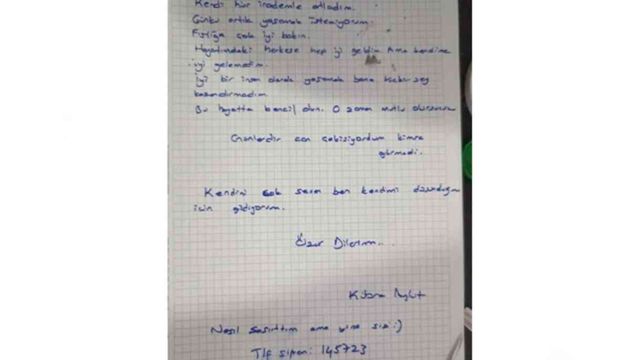 Kendi hür irademle atladım.
Çünkü artık yaşamak istemiyorum.
Fıstığa çok iyi bakın.
Hayatımdaki herkese hep iyi geldim Ama kendime
iyi gelemedim.
İyi bir insan olarak yaşamak bana hiçbir şey
kazandırmadım
Bu hayatta bencil olun. O zaman mutlu olursunuz
Günlerdir can çekişiyordum kimse
görmedi.
Kendimi çok seven ben kendimi düşündüğüm
için gidiyorum.
Özür Dilerim..
Kübra
Nasıl şaşırttım ama yine sizi :)
Tlf şifrem: 145723